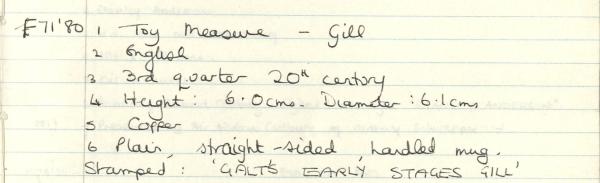 F71'80 1 Toy Measure – Gill
2 English
3 3rd quarter 20th century
4 Height: 6.0cms. Diameter: 6.1cms
5 Copper
6 Plain, straight-sided, handled mug.
Stamped: 'GALT'S EARLY STAGES GILL'